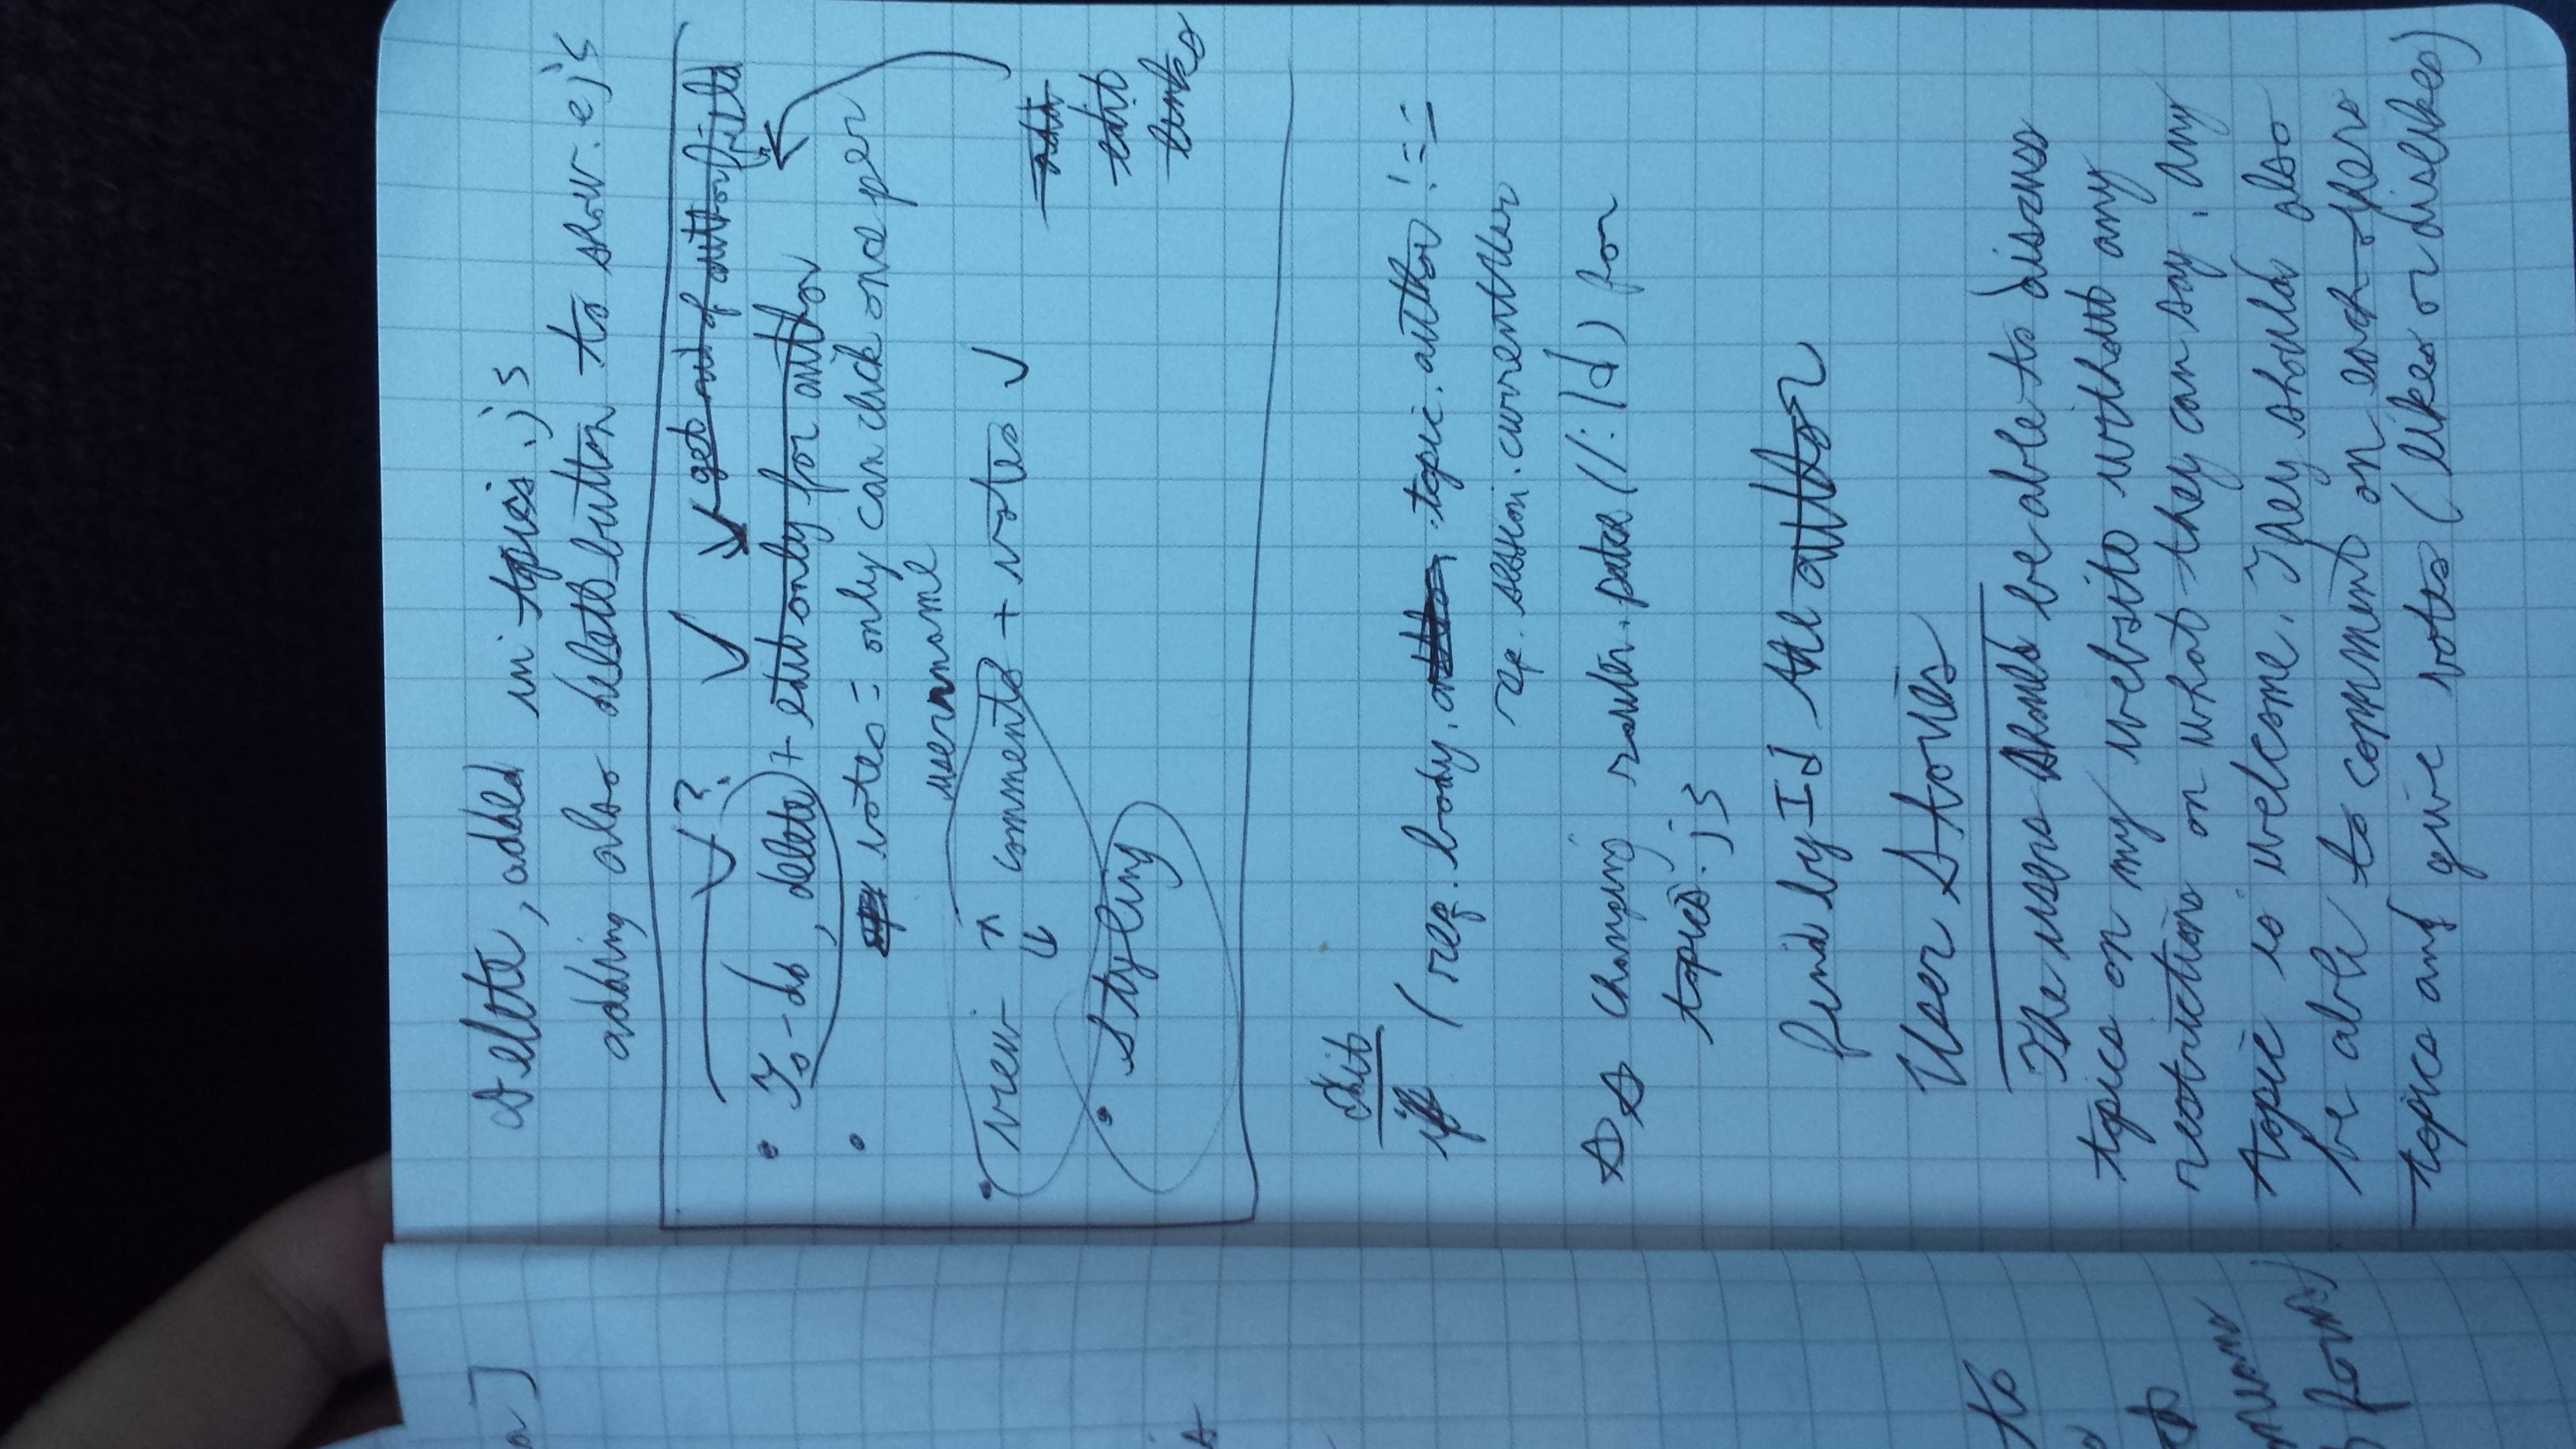 a]
to
means
forms
Delete, added in topics.js
adding also delete button to show.ejs
✓? ✓ ✓ get rid of author field
• To-do, delete + edit only for author
• votes = only can click once per
username
• view ↑ ↓ comments + votes ✓
add
edit
links
• Styling
Edit
if (req.body.author.topic.author !==
req.session.currentUser
☆☆ Changing router.patch(/:Id) for
topics.js
find by Id the author
User Stories
The users should be able to discuss
topics on my website without any
restrictions on what they can say. Any
topic is welcome. They should also
be able to comment on each others
topics and give votes (likes or dislikes)